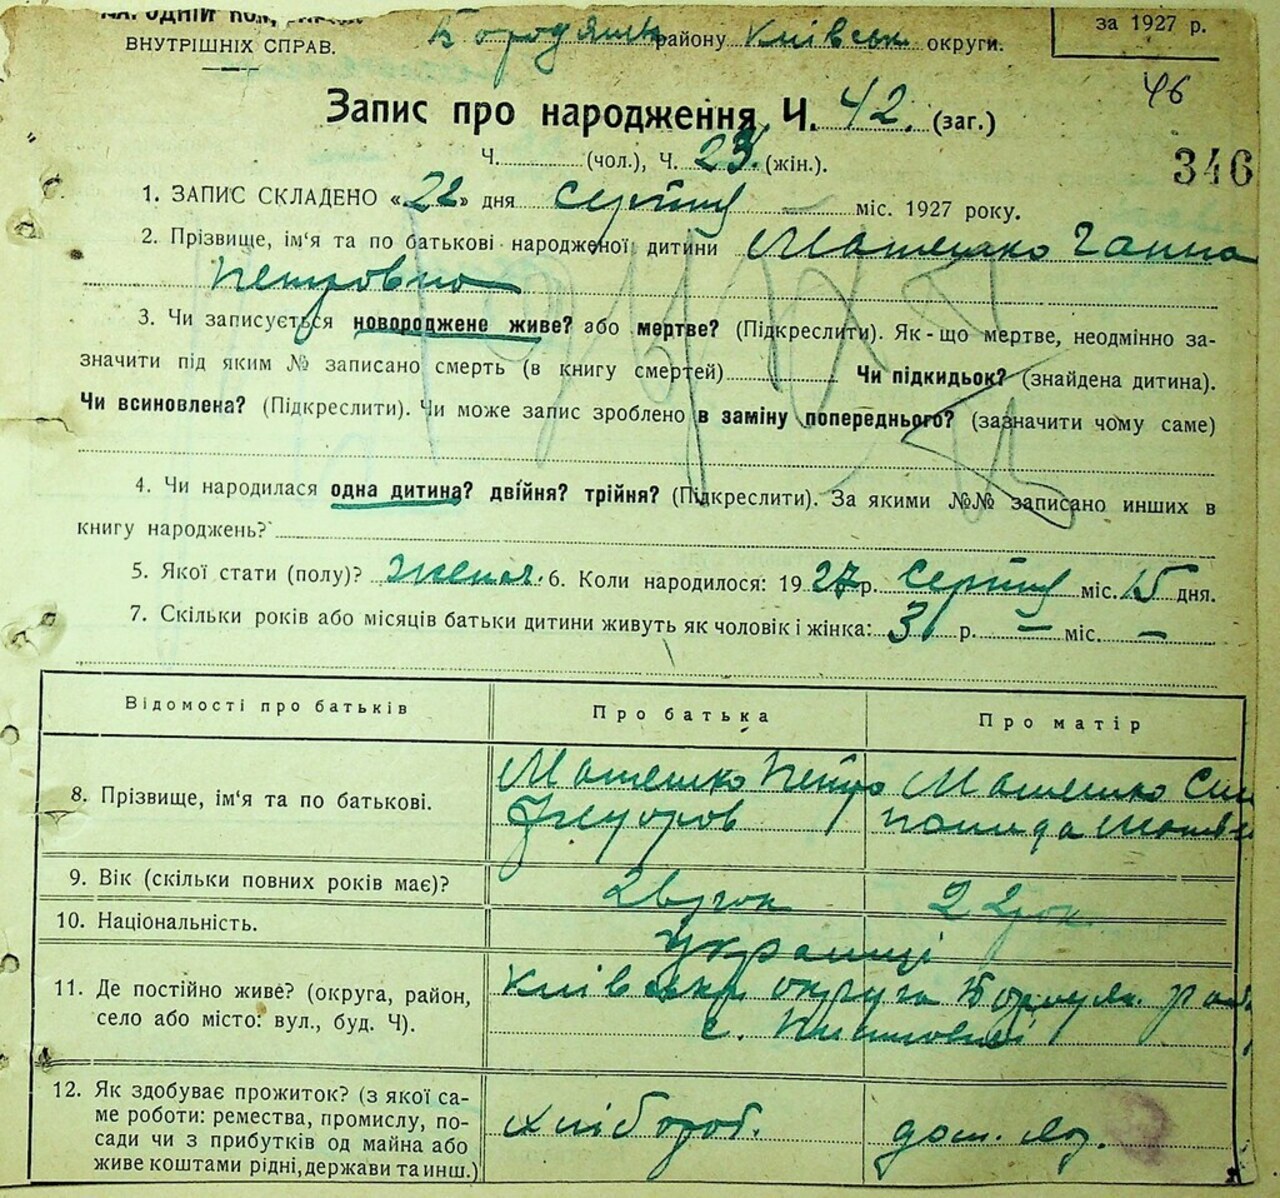 НАРОДНІЙ КОМ.
ВНУТРІШНІХ СПРАВ.
району Київськ округи.
за 1927 р.
46
Запис про народження Ч. 42. (заг.)
346
Ч. (чол.), Ч. 23. (жін.).
1. ЗАПИС СКЛАДЕНО «22» дня серпня міс. 1927 року.
2. Прізвище, ім‘я та по батькові народженої дитини Машешко Ганна
Петровна
3. Чи записується новороджене живе? або мертве? (Підкреслити). Як-що мертве, неодмінно за-
значити під яким № записано смерть (в книгу смертей) Чи підкидьок? (знайдена дитина).
Чи всиновлена? (Підкреслити). Чи може запис зроблено в заміну попереднього? (зазначити чому саме)
4. Чи народилася одна дитина? двійня? трійня? (Підкреслити). За якими №№ записано инших в
книгу народжень?
5. Якої стати (полу)? женск. 6. Коли народилося: 1927 р. серпня міс. 15 дня.
7. Скільки років або місяців батьки дитини живуть як чоловік і жінка: 3 р. — міс. —
Відомості про батьків Про батька Про матір
8. Прізвище, ім‘я та по батькові.
Машешко Петро
Федоров
Машешко
9. Вік (скільки повних років має)? 22 рок
10. Національність. українці
11. Де постійно живе? (округа, район,
село або місто: вул., буд. Ч).
Київська округа Бородян. район
с.
12. Як здобуває прожиток? (з якої са-
ме роботи: ремества, промислу, по-
сади чи з прибутків од майна або
живе коштами рідні, держави та инш.)
хлібороб.
дом. хоз.